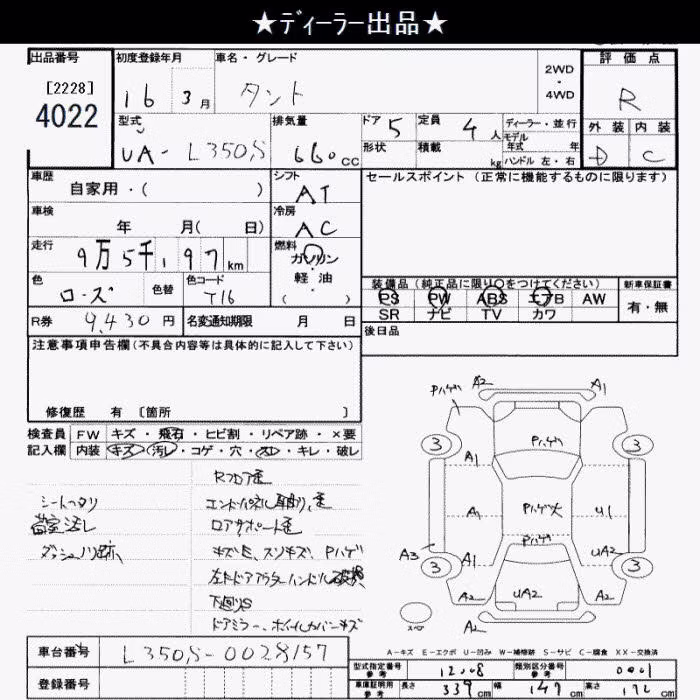 ★ディーラー出品★
出品番号 初度登録年月 車名・グレード 2WD・4WD 評価点
[2228]
4022
16 3月 タント R
型式 排気量 ドア 5 定員 4人 ディーラー・並行 外装 内装
モデル年式 年
UA-L350S 660cc 形状 積載 kg ハンドル 左・右 D C
車歴 シフト セールスポイント (正常に機能するものに限ります)
自家用・( ) AT
車検 冷房
年 月( 日) AC
走行 燃料
9万5千,197km ガソリン・軽油
色 色替 色コード ( )
ローズ T16
装備品 (純正品に限り○をつけてください) 新車保証書
PS PW ABS エアB AW 有・無
SR ナビ TV カワ
R券 9,430円 名変通知期限 月 日
後日品
注意事項申告欄(不具合内容等は具体的に記入して下さい)
修復歴 有 [箇所 ]
検査員 FW キズ・飛石・ヒビ割・リペア跡・×要
記入欄 内装 キズ・汚レ・コゲ・穴・スレ・キレ・破レ
Rフロア歪
シートヘタリ
ロアサポート歪
ダッシュノリ跡
キズE、スリキズ、Pハゲ
下廻りS
ドアミラー、ホイルカバーキズ
A2 A1
Pハゲ
3 Pハゲ 3
A1
A1 Pハゲ大 U1
Pハゲ
A3 A1 UA2
3 3
A2 UA2 A2
A2
スペア
A-キズ E-エクボ U-凹み W-補修跡 S-サビ C-腐食 XX-交換済
車台番号 L350S-0028157
登録番号
型式指定番号 参考 12008 類別区分番号 参考 0001
車庫証明用 参考 長さ 339cm 幅 147cm 高さ 172cm